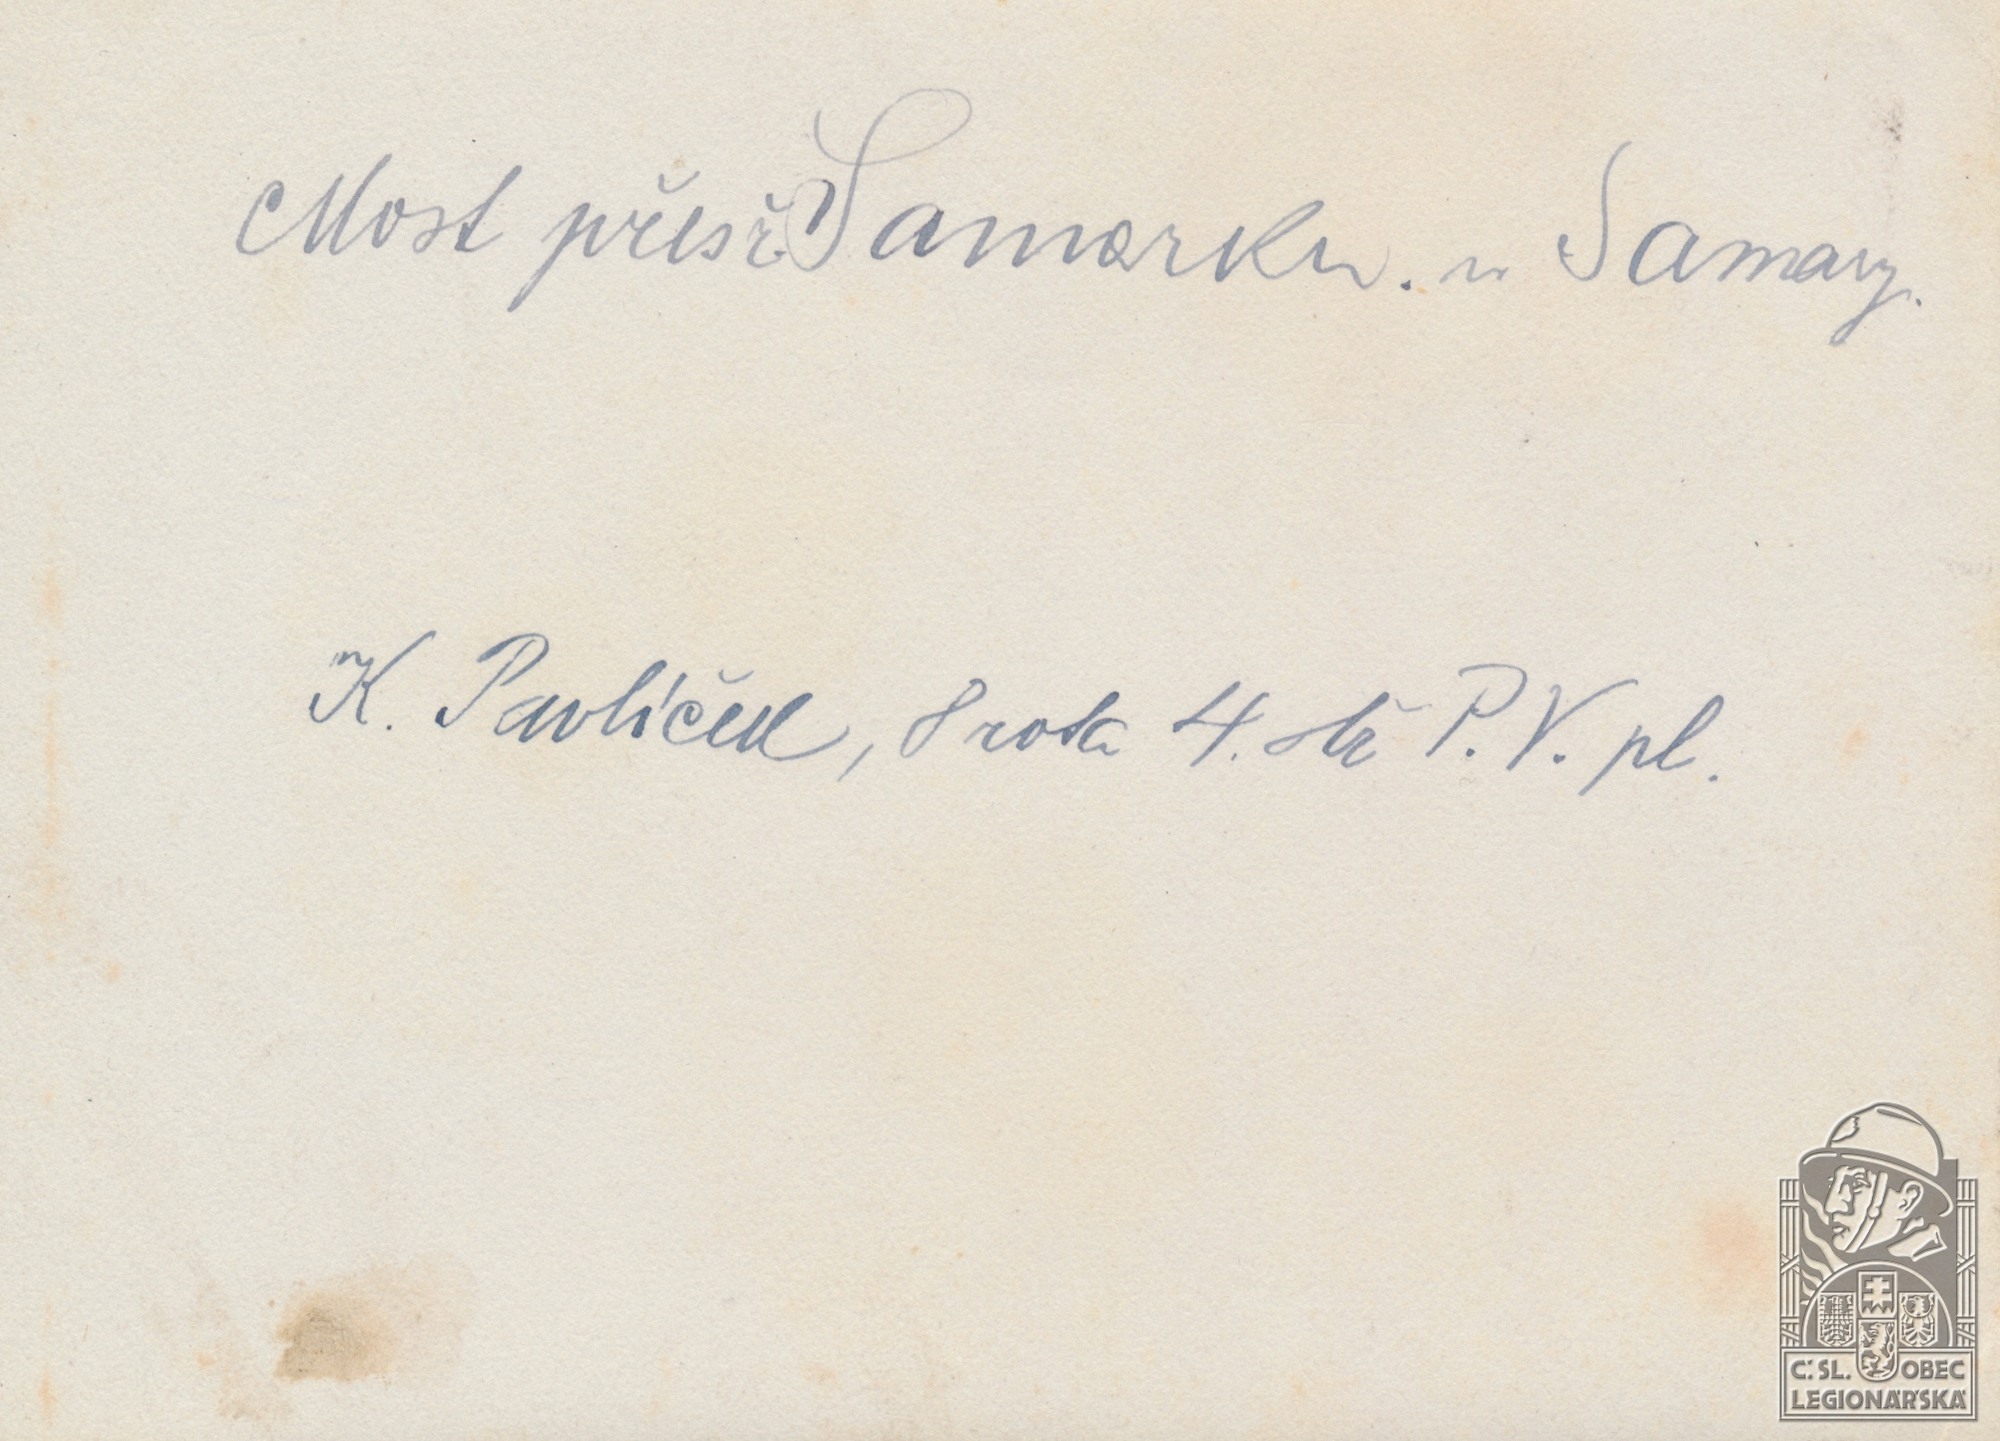 Most přes ř. Samarku. u Samary.
K. Pavlíček, 8 rota 4. stř P. V. pl.
Č. SL. OBEC
LEGIONÁŘSKÁ